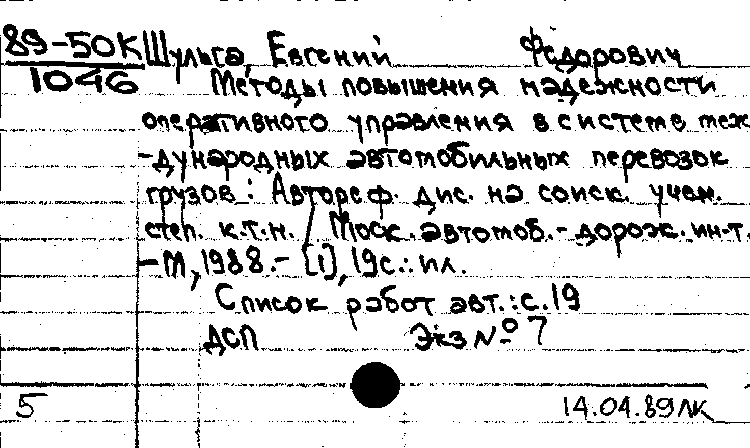 89-50К Шульга, Евгений Фёдорович
1046 Методы повышения надежности
оперативного управления в системе меж
-дународных автомобильных перевозок
грузов : Автореф. дис. на соиск. учен.
степ. к.т.н. / Моск. автомоб.-дорож. ин-т.
-М, 1988.- [1], 19с.: ил.
Список работ авт.: с. 19
ДСП Экз № 7
5 14.04.89ЛК